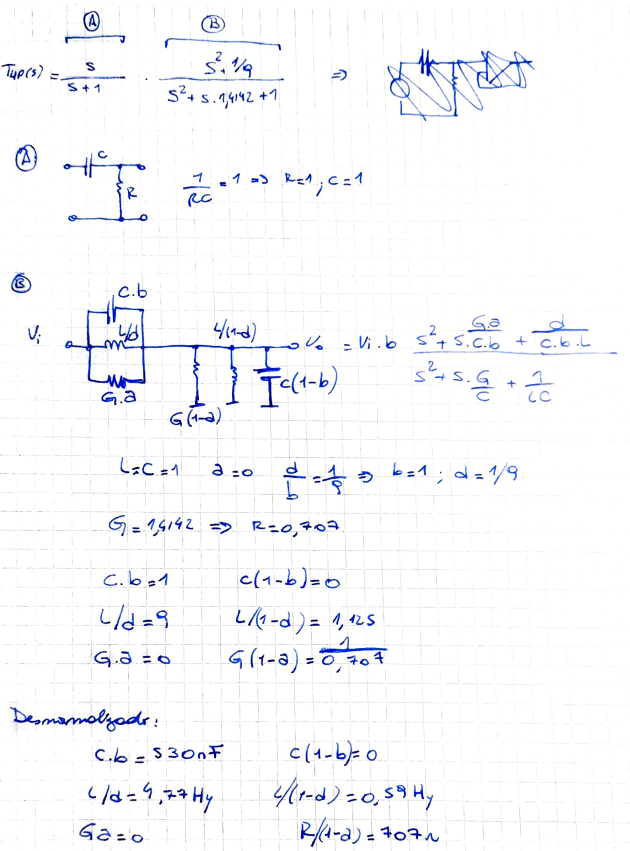 Ⓐ Ⓑ
THP(s) = s/(s+1) · (s² + 1/9)/(s² + s.1,4142 + 1) ⇒
Ⓐ C
R
1/(RC) = 1 ⇒ R=1 ; C=1
Ⓑ
C.b
Vi L/d L/(1-d) Vo = Vi . b (s² + s. G.a/(C.b) + d/(C.b.L))/(s² + s. G/C + 1/(LC))
G.a C(1-b)
G(1-a)
L=C=1 a=0 d/b = 1/9 ⇒ b=1 ; d=1/9
G = 1,4142 ⇒ R=0,707
C.b=1 C(1-b)=0
L/d=9 L/(1-d) = 1,125
G.a=0 G(1-a) = 1/0,707
Desnormalizado:
C.b = 530nF C(1-b)=0
L/d = 4,77Hy L/(1-d) = 0,59Hy
Ga=0 R/(1-a) = 707Ω